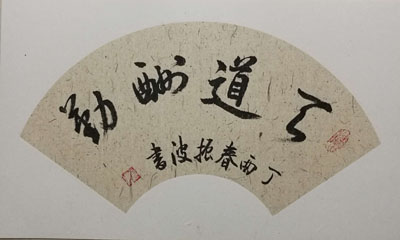 天道酬勤
丁酉春振波書